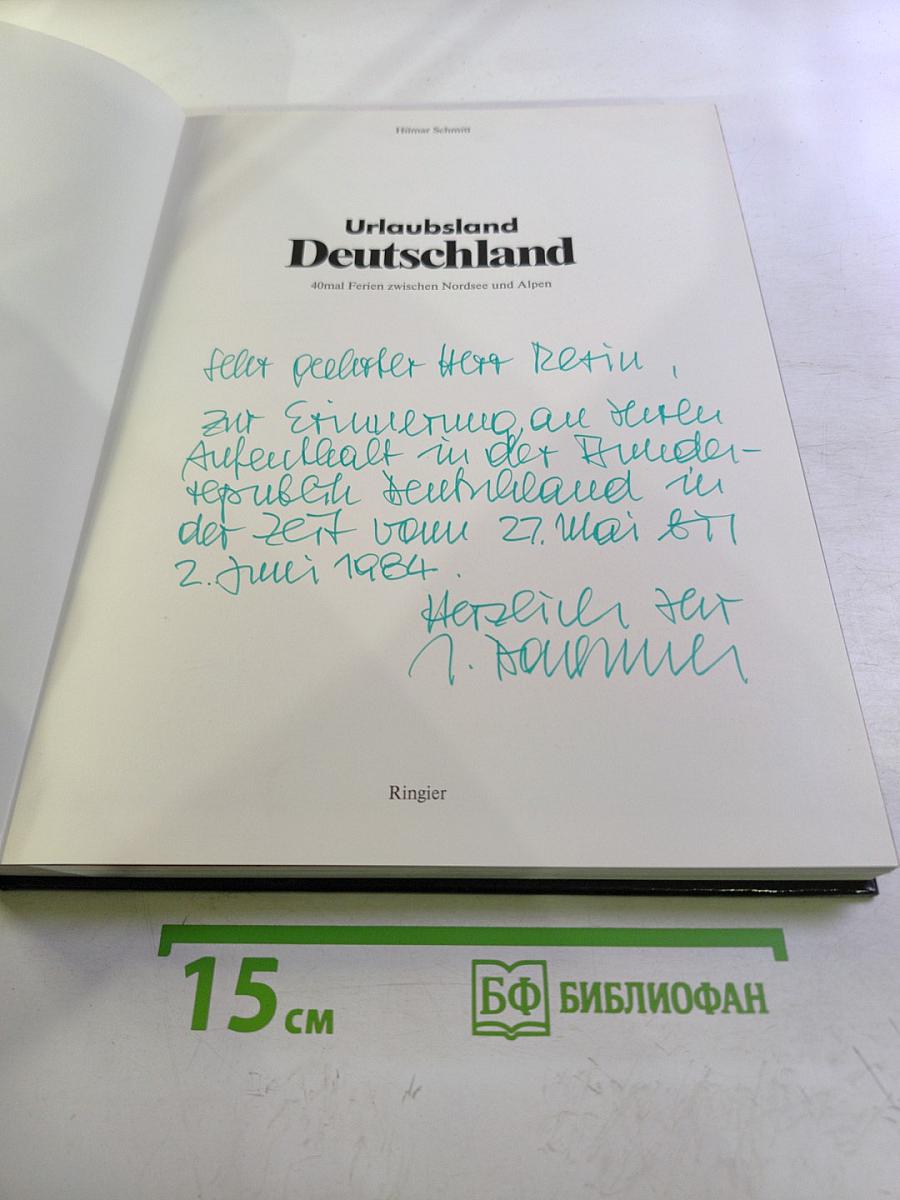 Hilmar Schmitt
Urlaubsland
Deutschland
40mal Ferien zwischen Nordsee und Alpen
Sehr geehrter Herr
zur Erinnerung an Ihren
Aufenthalt in der Bundes-
republik Deutschland in
der Zeit vom 27. Mai bis
2. Juni 1984.
Herzlich Ihr
Ringier
15 см
БФ БИБЛИОФАН